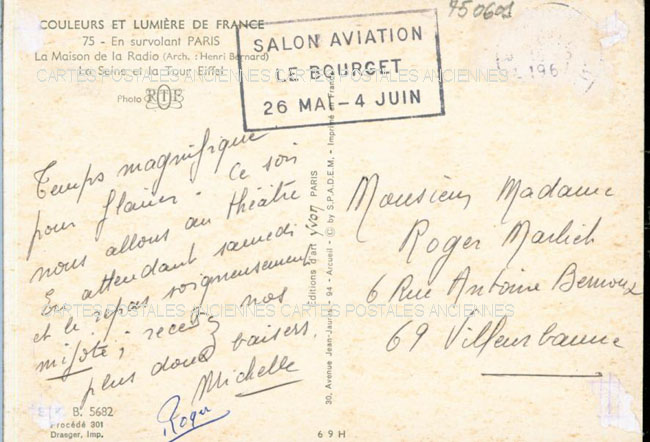 COULEURS ET LUMIÈRE DE FRANCE
75 - En survolant PARIS
La Maison de la Radio (Arch. : Henri Bernard)
La Seine et la Tour Eiffel
Photo RTF
SALON AVIATION
LE BOURGET
26 MAI-4 JUIN
450601
196
CARTES POSTALES ANCIENNES CARTES POSTALES ANCIENNES
Temps magnifique
pour flâner. Ce soir
nous allons au théâtre
En attendant samedi
et le repas soigneusement
mijoté; recevez nos
plus doux baisers.
Michelle
Roger
Monsieur Madame
Roger
6 Rue Antoine
69 Villeurbanne
30, Avenue Jean-Jaurès - 94 - Arcueil - © by S.P.A.D.E.M. - Imprimé en France
Éditions d'art yvon PARIS
CARTES POSTALES ANCIENNES CARTES POSTALES ANCIENNES
B. 5682
Procédé 301
Draeger, Imp.
69H